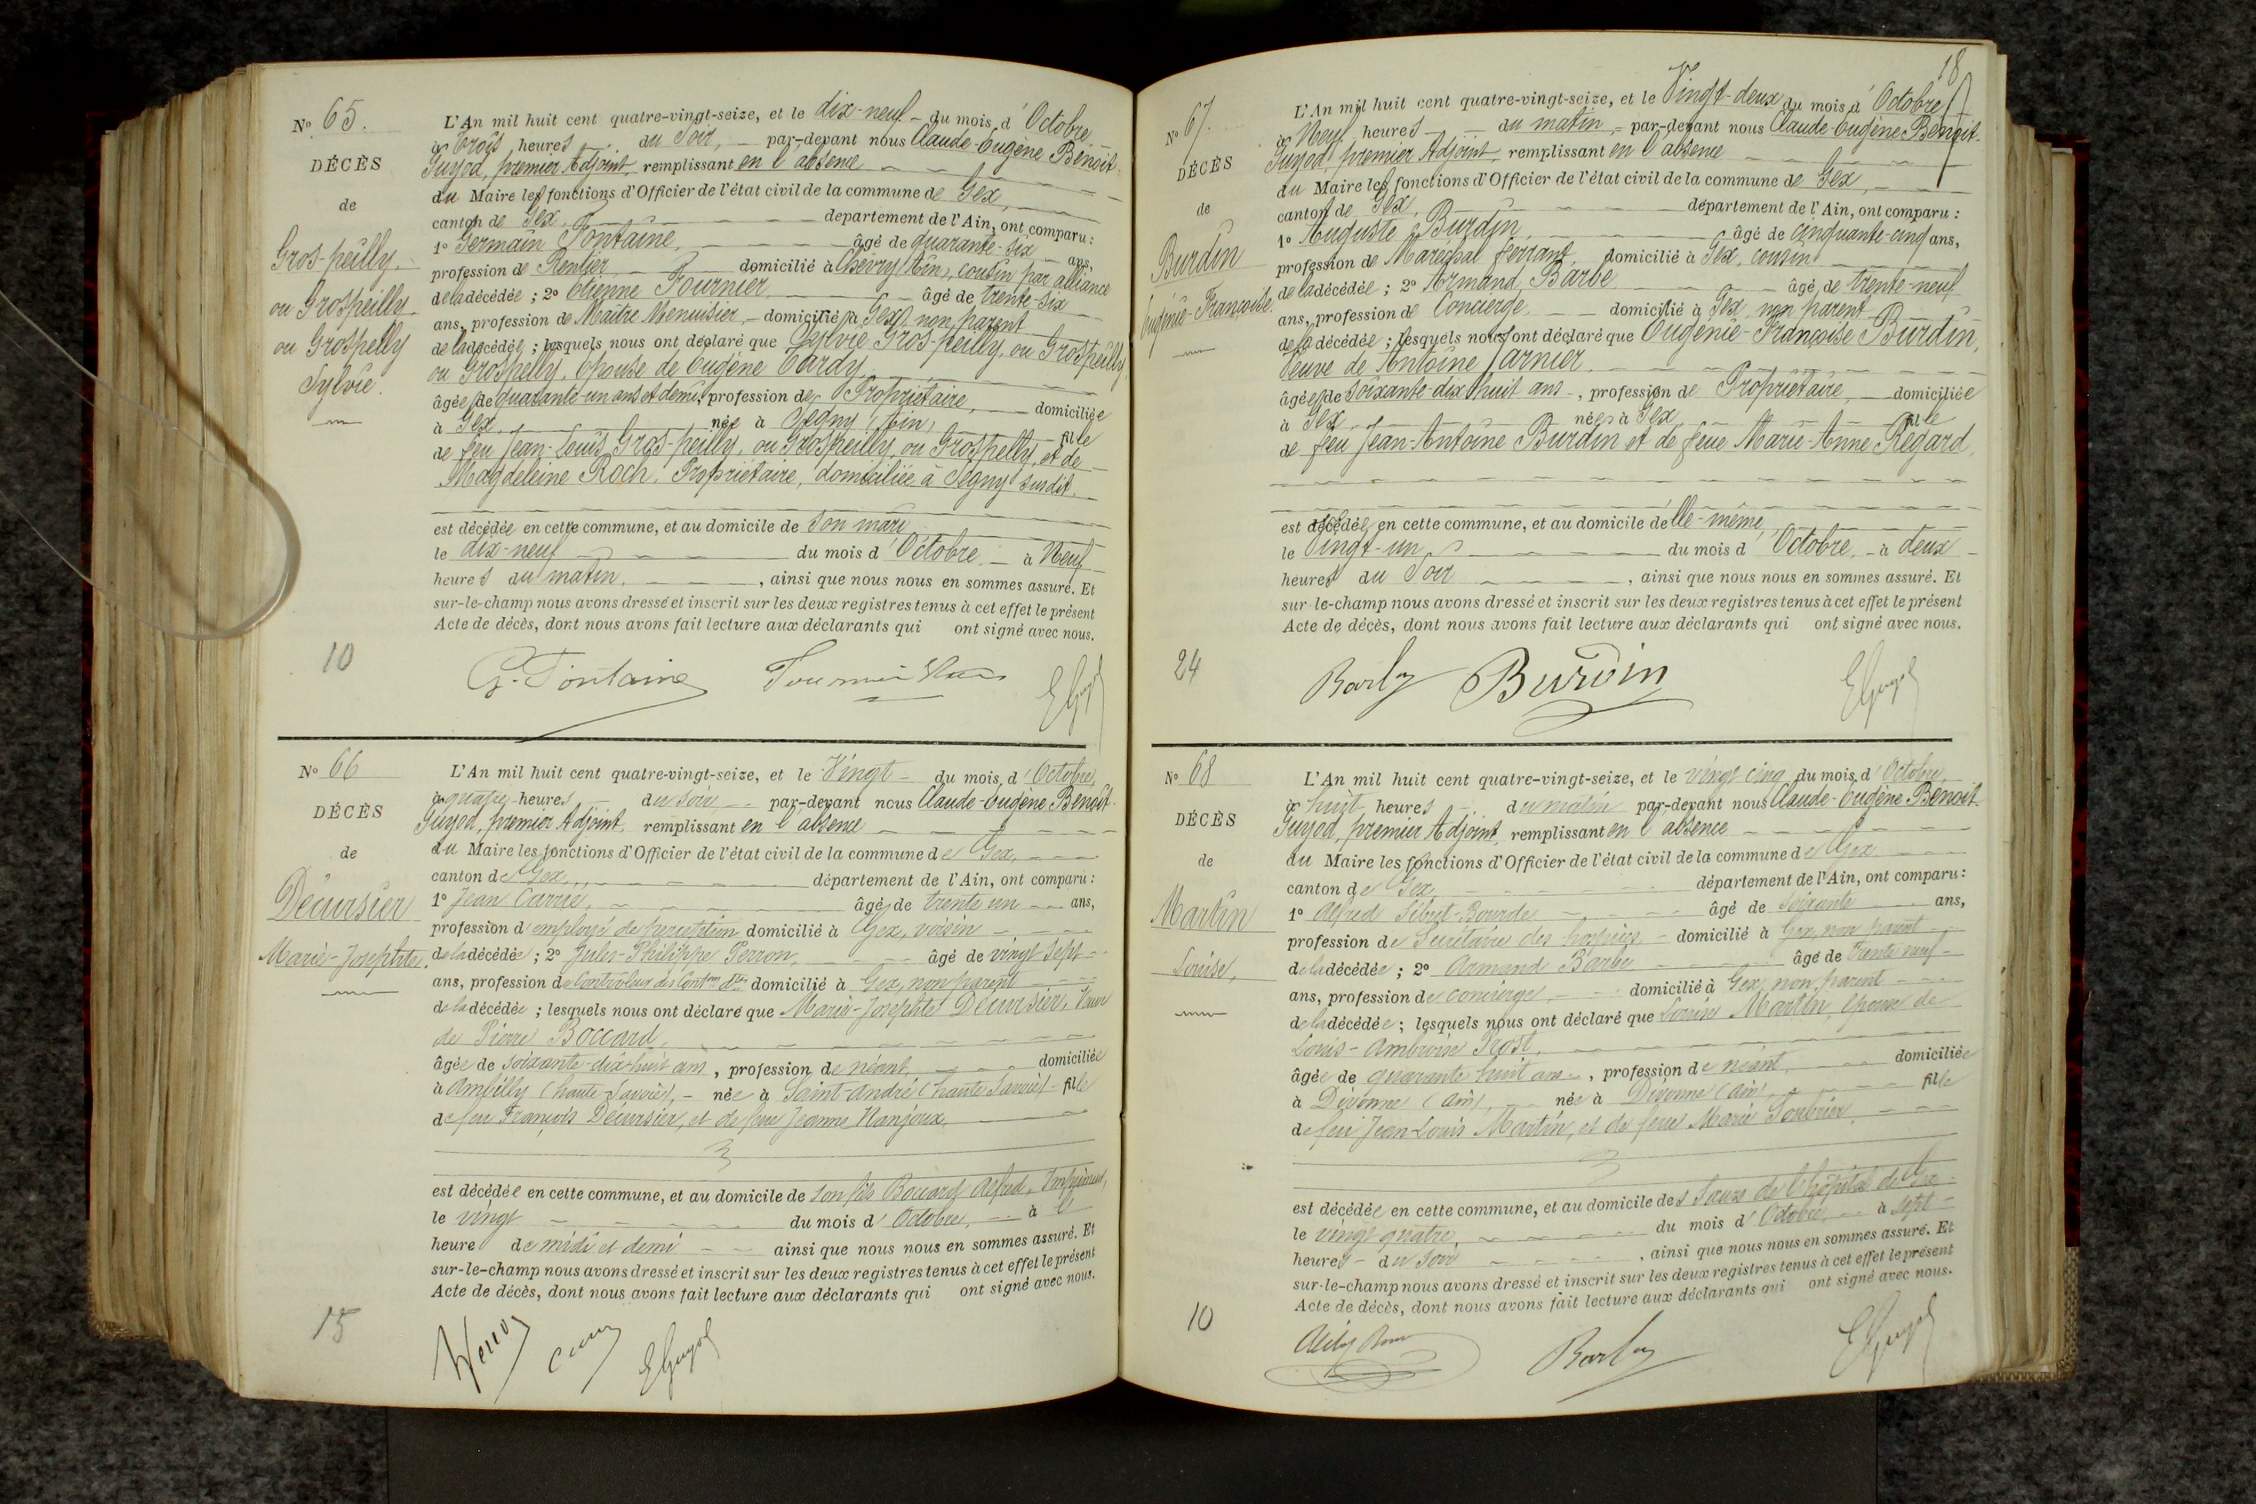 No 65.
DÉCÈS
de
Gros-peilly,
ou Grospeilly
ou Grospelly
Sylvie.
L'An mil huit cent quatre-vingt-seize, et le dix-neuf du mois d'Octobre
à Trois heures du Soir, par-devant nous Claude-Eugène Benoit
Guyod, premier Adjoint, remplissant en l'absence
du Maire les fonctions d'Officier de l'état civil de la commune de Gex,
canton de Gex, département de l'Ain, ont comparu :
1o Germain Fontaine, âgé de quarante-six ans,
profession de Rentier domicilié à Chevry (Ain), cousin par alliance
de la décédée ; 2o Etienne Fournier âgé de trente-six
ans, profession de Maître Menuisier, domicilié à Gex, non parent
de la décédée ; lesquels nous ont déclaré que Sylvie Gros-peilly, ou Grospeilly,
ou Grospelly, Epouse de Eugène Tardy,
âgée de quarante-un ans et demi, profession de Propriétaire, domiciliée
à Gex, née à Segny (Ain) fille
de feu Jean-Louis Gros-peilly, ou Grospeilly, ou Grospelly, et de
Magdeleine Roch, Propriétaire, domiciliée à Segny susdit.
est décédée en cette commune, et au domicile de son mari
le dix-neuf du mois d'Octobre à Neuf
heures du matin, ainsi que nous nous en sommes assuré. Et
sur-le-champ nous avons dressé et inscrit sur les deux registres tenus à cet effet le présent
Acte de décès, dont nous avons fait lecture aux déclarants qui ont signé avec nous.
10
G. Fontaine Fournier EGuyod
No 66
DÉCÈS
de
Décursier
Marie-Josephte.
L'An mil huit cent quatre-vingt-seize, et le Vingt du mois d'Octobre,
à quatre heures du soir par-devant nous Claude-Eugène Benoit
Guyod, premier Adjoint, remplissant en l'absence
du Maire les fonctions d'Officier de l'état civil de la commune de Gex,
canton de Gex, département de l'Ain, ont comparu :
1o Jean Carrié, âgé de trente un ans,
profession d'employé de perception domicilié à Gex, voisin
de la décédée ; 2o Jules-Philippe Perron, âgé de vingt-sept
ans, profession de Controleur des Contons Dtes domicilié à Gex, non parent
de la décédée ; lesquels nous ont déclaré que Marie-Josephte Décursier, Veuve
de Pierre Boccard,
âgée de soixante-dix-huit ans, profession de néant, domiciliée
à Ambilly (haute Savoie), née à Saint-André (haute Savoie) fille
de feu François Décursier, et de feue Jeanne Nanjoux,
est décédée en cette commune, et au domicile de son fils Boccard Alfred, Imprimeur,
le vingt du mois d'Octobre, à l'
heure de midi et demi ainsi que nous nous en sommes assuré. Et
sur-le-champ nous avons dressé et inscrit sur les deux registres tenus à cet effet le présent
Acte de décès, dont nous avons fait lecture aux déclarants qui ont signé avec nous.
15
EGuyod
18
No 67.
DÉCÈS
de
Burdin
Eugénie-Françoise.
L'An mil huit cent quatre-vingt-seize, et le Vingt-deux du mois d'Octobre
à Neuf heures du matin, par-devant nous Claude-Eugène Benoit
Guyod, premier Adjoint, remplissant en l'absence
du Maire les fonctions d'Officier de l'état civil de la commune de Gex,
canton de Gex, département de l'Ain, ont comparu :
1o Auguste Burdin, âgé de cinquante-cinq ans,
profession de Maréchal ferrant, domicilié à Gex, cousin
de la décédée ; 2o Armand Barbe âgé de trente-neuf
ans, profession de Concierge domicilié à Gex, non parent
de la décédée ; lesquels nous ont déclaré que Eugénie-Françoise Burdin,
Veuve de Antoine Jarnier,
âgée de soixante-dix-huit ans, profession de Propriétaire, domiciliée
à Gex née à Gex fille
de feu Jean-Antoine Burdin et de feue Marie-Anne Regard,
est décédée en cette commune, et au domicile d'elle-même
le Vingt-un du mois d'Octobre, à deux
heures du Soir, ainsi que nous nous en sommes assuré. Et
sur-le-champ nous avons dressé et inscrit sur les deux registres tenus à cet effet le présent
Acte de décès, dont nous avons fait lecture aux déclarants qui ont signé avec nous.
24
Barbe Burdin EGuyod
No 68
DÉCÈS
de
Martin
Louise,
L'An mil huit cent quatre-vingt-seize, et le vingt-cinq du mois d'Octobre,
à huit heures du matin par-devant nous Claude-Eugène Benoit
Guyod, premier Adjoint, remplissant en l'absence
du Maire les fonctions d'Officier de l'état civil de la commune de Gex
canton de Gex, département de l'Ain, ont comparu :
1o Alfred Bourde âgé de Soixante ans,
profession de Secrétaire des hospices, domicilié à Gex, non parent
de la décédée ; 2o Armand Barbe âgé de Trente neuf
ans, profession de concierge, domicilié à Gex, non parent
de la décédée ; lesquels nous ont déclaré que Louise Martin, épouse de
Louis-Ambroise Prost,
âgée de quarante huit ans, profession de néant, domiciliée
à Divonne (Ain), née à Divonne (Ain), fille
de feu Jean-Louis Martin, et de feue Marie Soubrier,
est décédée en cette commune, et au domicile des Sœurs de l'hôpital de Gex
le vingt-quatre, du mois d'Octobre, à sept
heures du soir, ainsi que nous nous en sommes assuré. Et
sur-le-champ nous avons dressé et inscrit sur les deux registres tenus à cet effet le présent
Acte de décès, dont nous avons fait lecture aux déclarants qui ont signé avec nous.
10
Barbe EGuyod